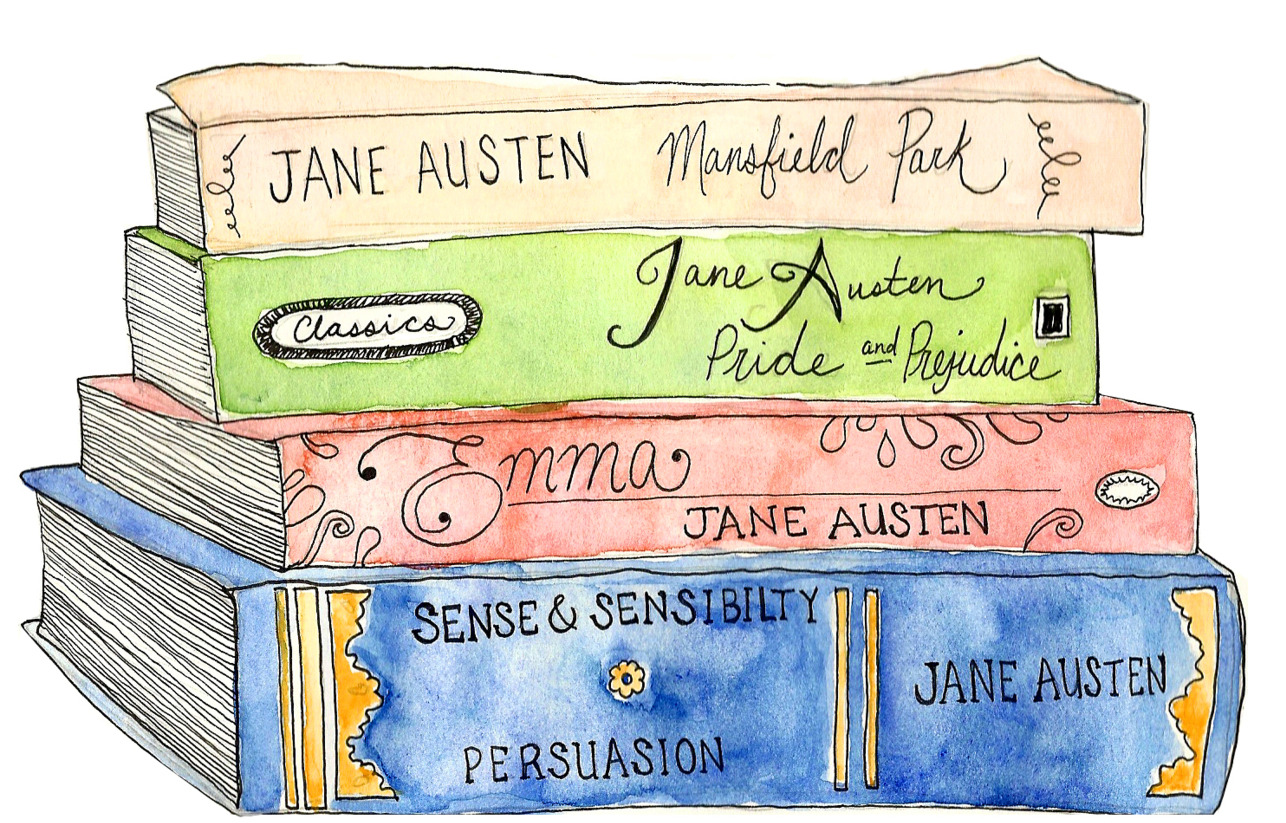 JANE AUSTEN Mansfield Park
Classics
Jane Austen
Pride and Prejudice
Emma
JANE AUSTEN
SENSE & SENSIBILTY
PERSUASION
JANE AUSTEN